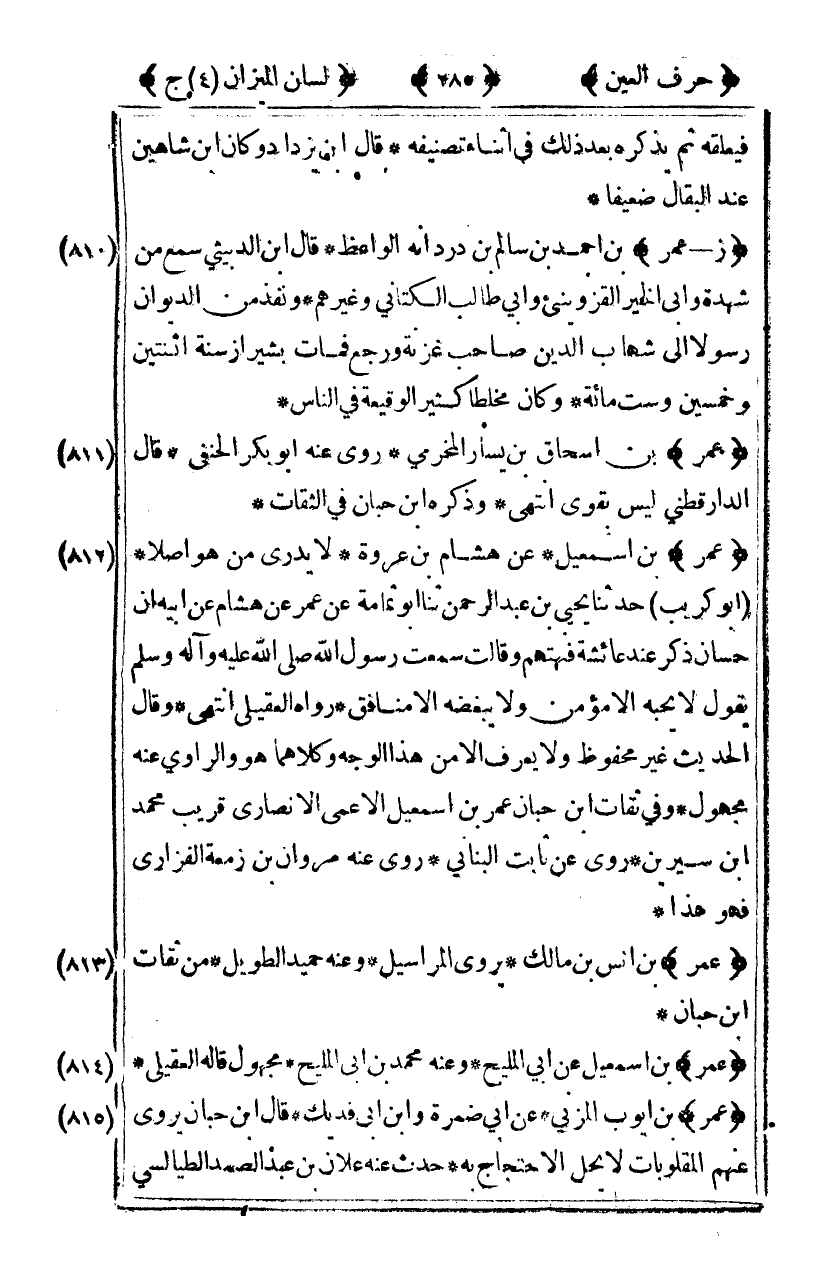 ﴿ حرف العين ﴾ ﴿ ٢٨٥ ﴾ ﴿ لسان الميزان (٤) ج ﴾
فيعلقه ثم يذكره بعد ذلك في أثناء تصنيفه * قال ابن يزداد وكان ابن شاهين
عند البقال ضعيفا *
﴿ ز—عمر ﴾ بن احمد بن سالم بن دردانه الواعظ * قال ابن الدبيثي سمع من (٨١٠)
شهدة وابى الخير القزويني وابي طالب الكتاني وغيرهم * ونفذ من الديوان
رسولا الى شهاب الدين صاحب غزنة ورجع فمات بشيراز سنة اثنتين
وخمسين وست مائة * وكان مخلطا كثير الوقيعة في الناس *
﴿ عمر ﴾ بن اسحاق بن يسار المخرمي * روى عنه ابو بكر الحنفى * قال (٨١١)
الدارقطني ليس بقوى انتهى * وذكره ابن حبان في الثقات *
﴿ عمر ﴾ بن اسمعيل * عن هشام بن عروة * لا يدرى من هو اصلا * (٨١٢)
(ابو كريب) حدثنا يحيى بن عبد الرحمن ثنا ابو ثمامة عن عمر عن هشام عن ابيه ان
حسان ذكر عند عائشة فنهتهم وقالت سمعت رسول الله صلى الله عليه وآله وسلم
يقول لا يحبه الا مؤمن ولا يبغضه الا منافق * رواه العقيلى انتهى * وقال
الحديث غير محفوظ ولا يعرف الا من هذا الوجه وكلاهما هو والراوي عنه
مجهول * وفي ثقات ابن حبان عمر بن اسمعيل الاعمى الانصارى قريب محمد
ابن سيرين * روى عن ثابت البناني * روى عنه مروان بن زمعة الفزارى
فهو هذا *
﴿ عمر ﴾ بن انس بن مالك * يروى المراسيل * وعنه حميد الطويل * من ثقات (٨١٣)
ابن حبان *
﴿ عمر ﴾ بن اسمعيل عن ابي المليح * وعنه محمد بن ابى المليح * مجهول قاله العقيلى * (٨١٤)
﴿ عمر ﴾ بن ايوب المزني * عن ابي ضمرة وابن ابى فديك * قال ابن حبان يروى (٨١٥)
عنهم المقلوبات لا يحل الاحتجاج به * حدث عنه علان بن عبد الصمد الطيالسي